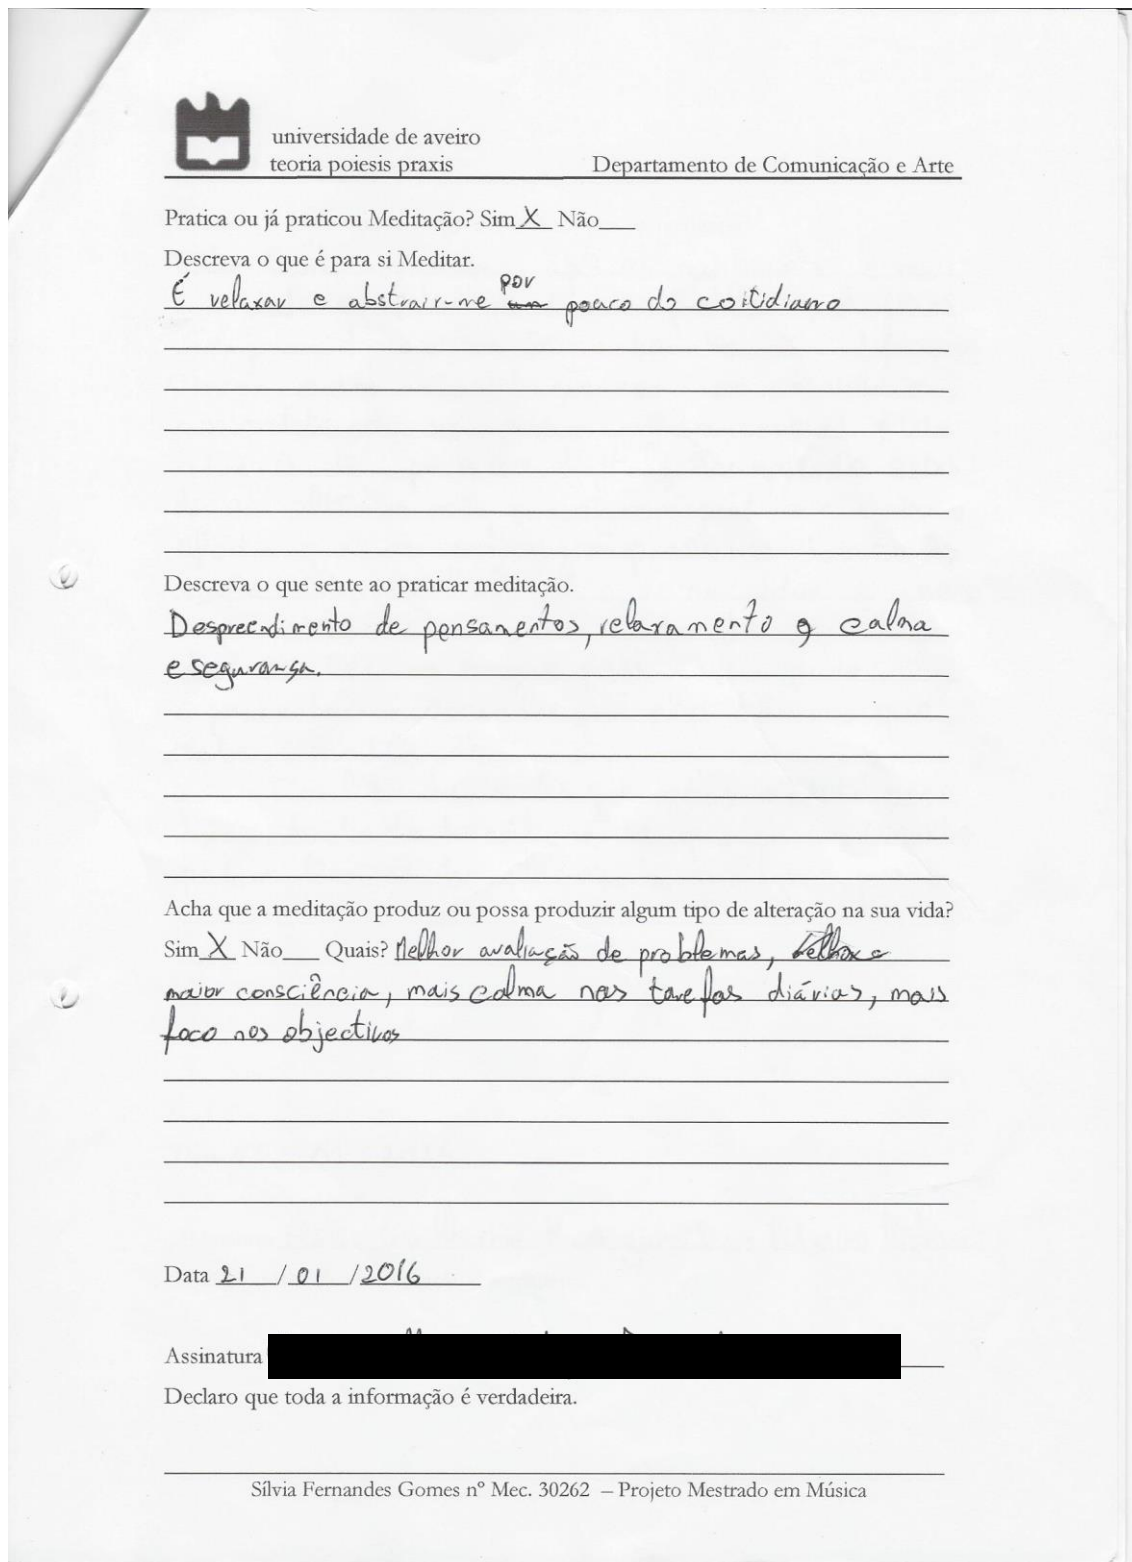 universidade de aveiro
teoria poiesis praxis Departamento de Comunicação e Arte
Pratica ou já praticou Meditação? Sim X Não___
Descreva o que é para si Meditar.
É relaxar e abstrair-me por pouco do coitidiano
Descreva o que sente ao praticar meditação.
Despreendimento de pensamentos, relaxamento e calma
e seguransa.
Acha que a meditação produz ou possa produzir algum tipo de alteração na sua vida?
Sim X Não___ Quais? Melhor avaliação de problemas,
maior consciência, mais calma nas tarefas diárias, mais
foco nos objectivos
Data 21 / 01 / 2016
Assinatura
Declaro que toda a informação é verdadeira.
Sílvia Fernandes Gomes nº Mec. 30262 – Projeto Mestrado em Música